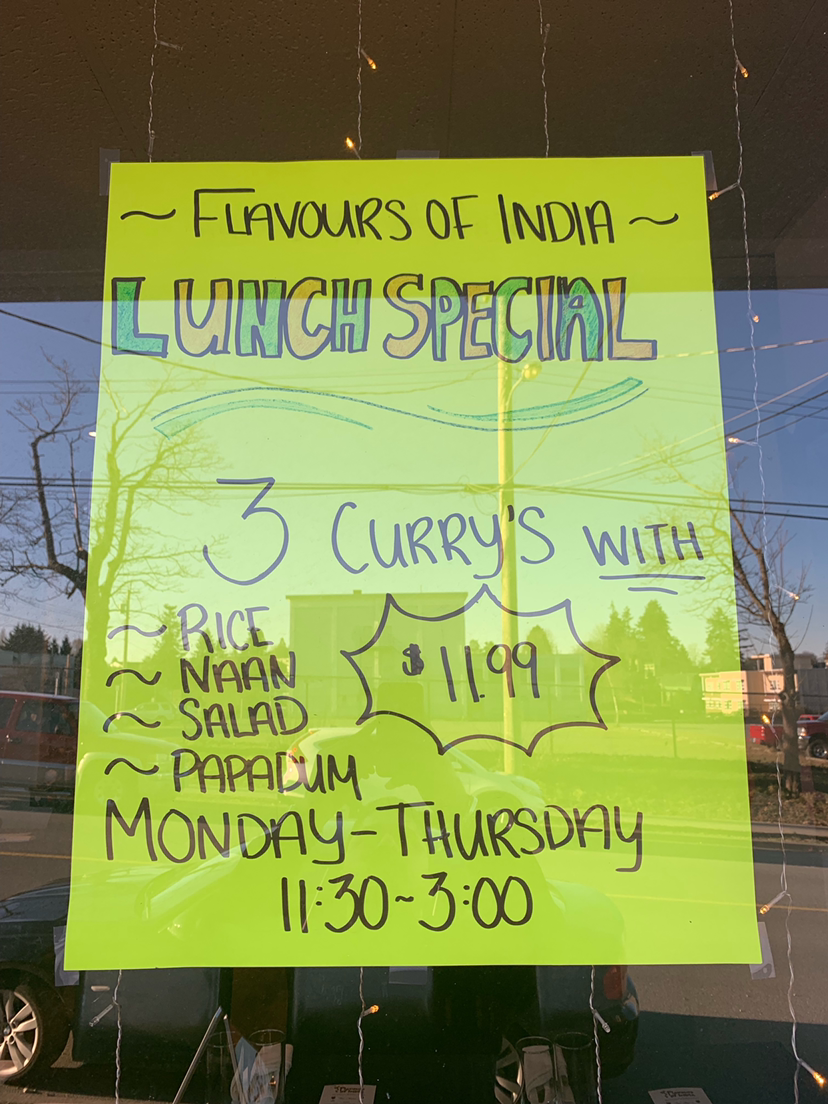 ~ FLAVOURS OF INDIA ~
LUNCH SPECIAL
3 CURRY'S WITH
~ RICE
~ NAAN
~ SALAD
~ PAPADUM
$11.99
MONDAY-THURSDAY
11:30~3:00